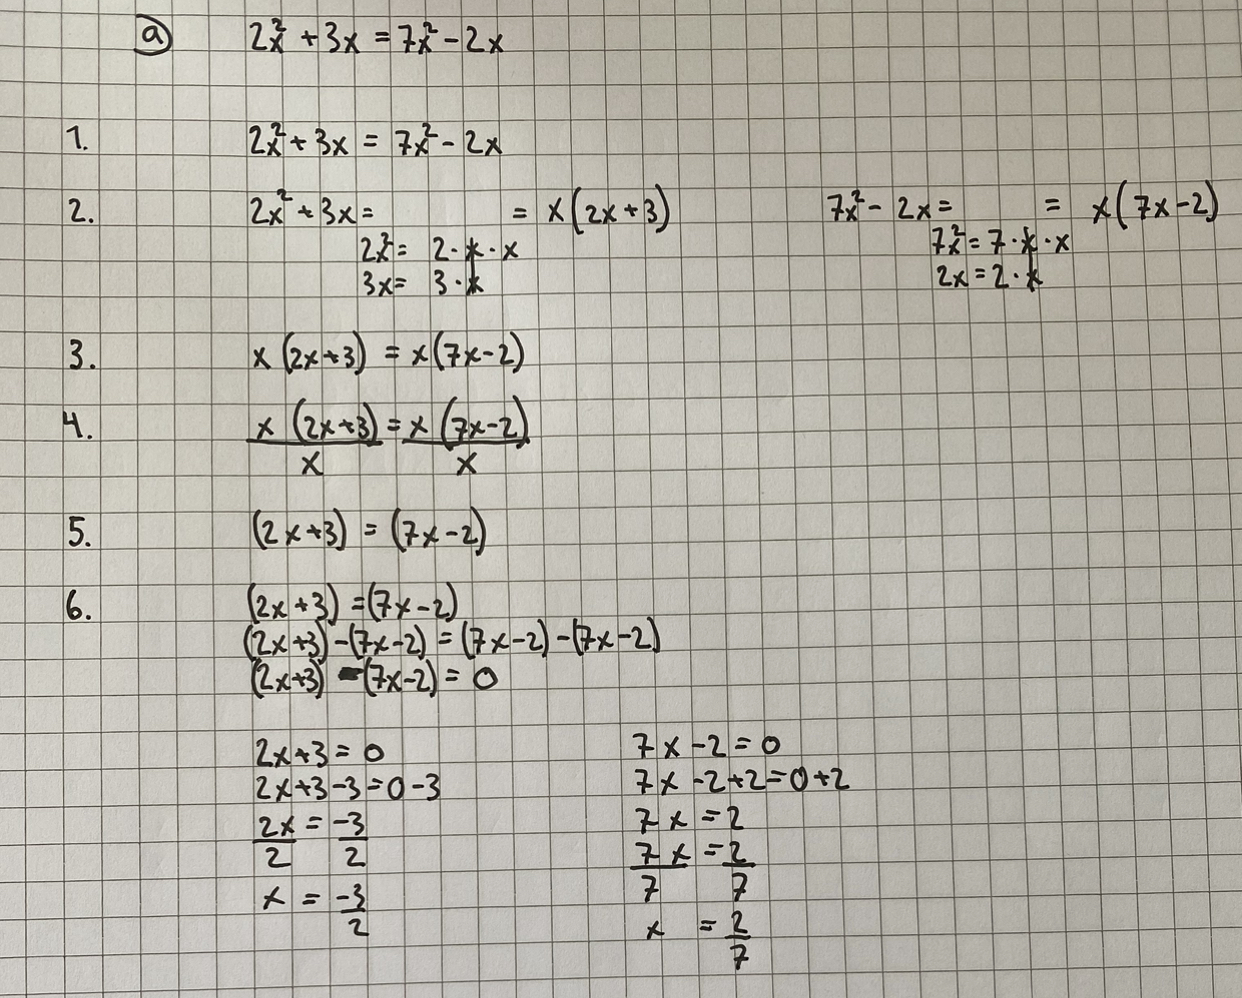 a) 2x² + 3x = 7x² - 2x
1. 2x² + 3x = 7x² - 2x
2. 2x² + 3x = = x(2x+3) 7x² - 2x = = x(7x-2)
2x² = 2·x·x 7x² = 7·x·x
3x = 3·x 2x = 2·x
3. x(2x+3) = x(7x-2)
4. x(2x+3) = x(7x-2)
x x
5. (2x+3) = (7x-2)
6. (2x+3) = (7x-2)
(2x+3) - (7x-2) = (7x-2) - (7x-2)
(2x+3) - (7x-2) = 0
2x+3 = 0 7x-2 = 0
2x+3-3 = 0-3 7x-2+2 = 0+2
2x = -3 7x = 2
2 2 7x = 2
x = -3 7 7
2 x = 2
7